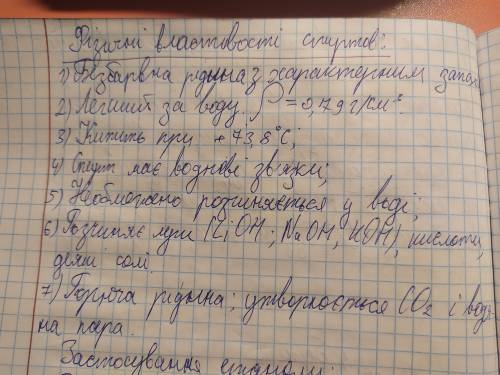 Фізичні властивості спиртов:
1) Безбарвна рідина з характерним запах
2) Легший за воду. ρ = 0,79 г/см³.
3) Кипить при +73,8°C;
4) Спирт має водневі зв'язки;
5) Необмежено розчиняється у воді;
6) Розчиняє луги (LiOH; NaOH, KOH), кислоти,
деякі солі.
7) Горюча рідина; утворюється CO₂ і водя
на пара.
Застосування етанолу: